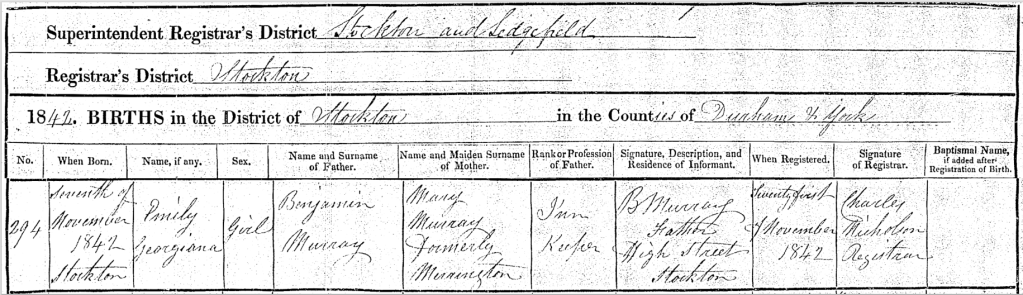 Superintendent Registrar's District Stockton and Sedgefield
Registrar's District Stockton
1842. BIRTHS in the District of Stockton in the Counties of Durham & York
No. When Born. Name, if any. Sex. Name and Surname of Father. Name and Maiden Surname of Mother. Rank or Profession of Father. Signature, Description, and Residence of Informant. When Registered. Signature of Registrar. Baptismal Name, if added after Registration of Birth.
294
Seventh of
November
1842
Stockton
Emily
Georgiana
Girl
Benjamin
Murray
Mary
Murray
Formerly
Merrington
Inn
Keeper
B Murray
Father
High Street
Stockton
Twenty first
of November
1842
Charles
Nicholson
Registrar